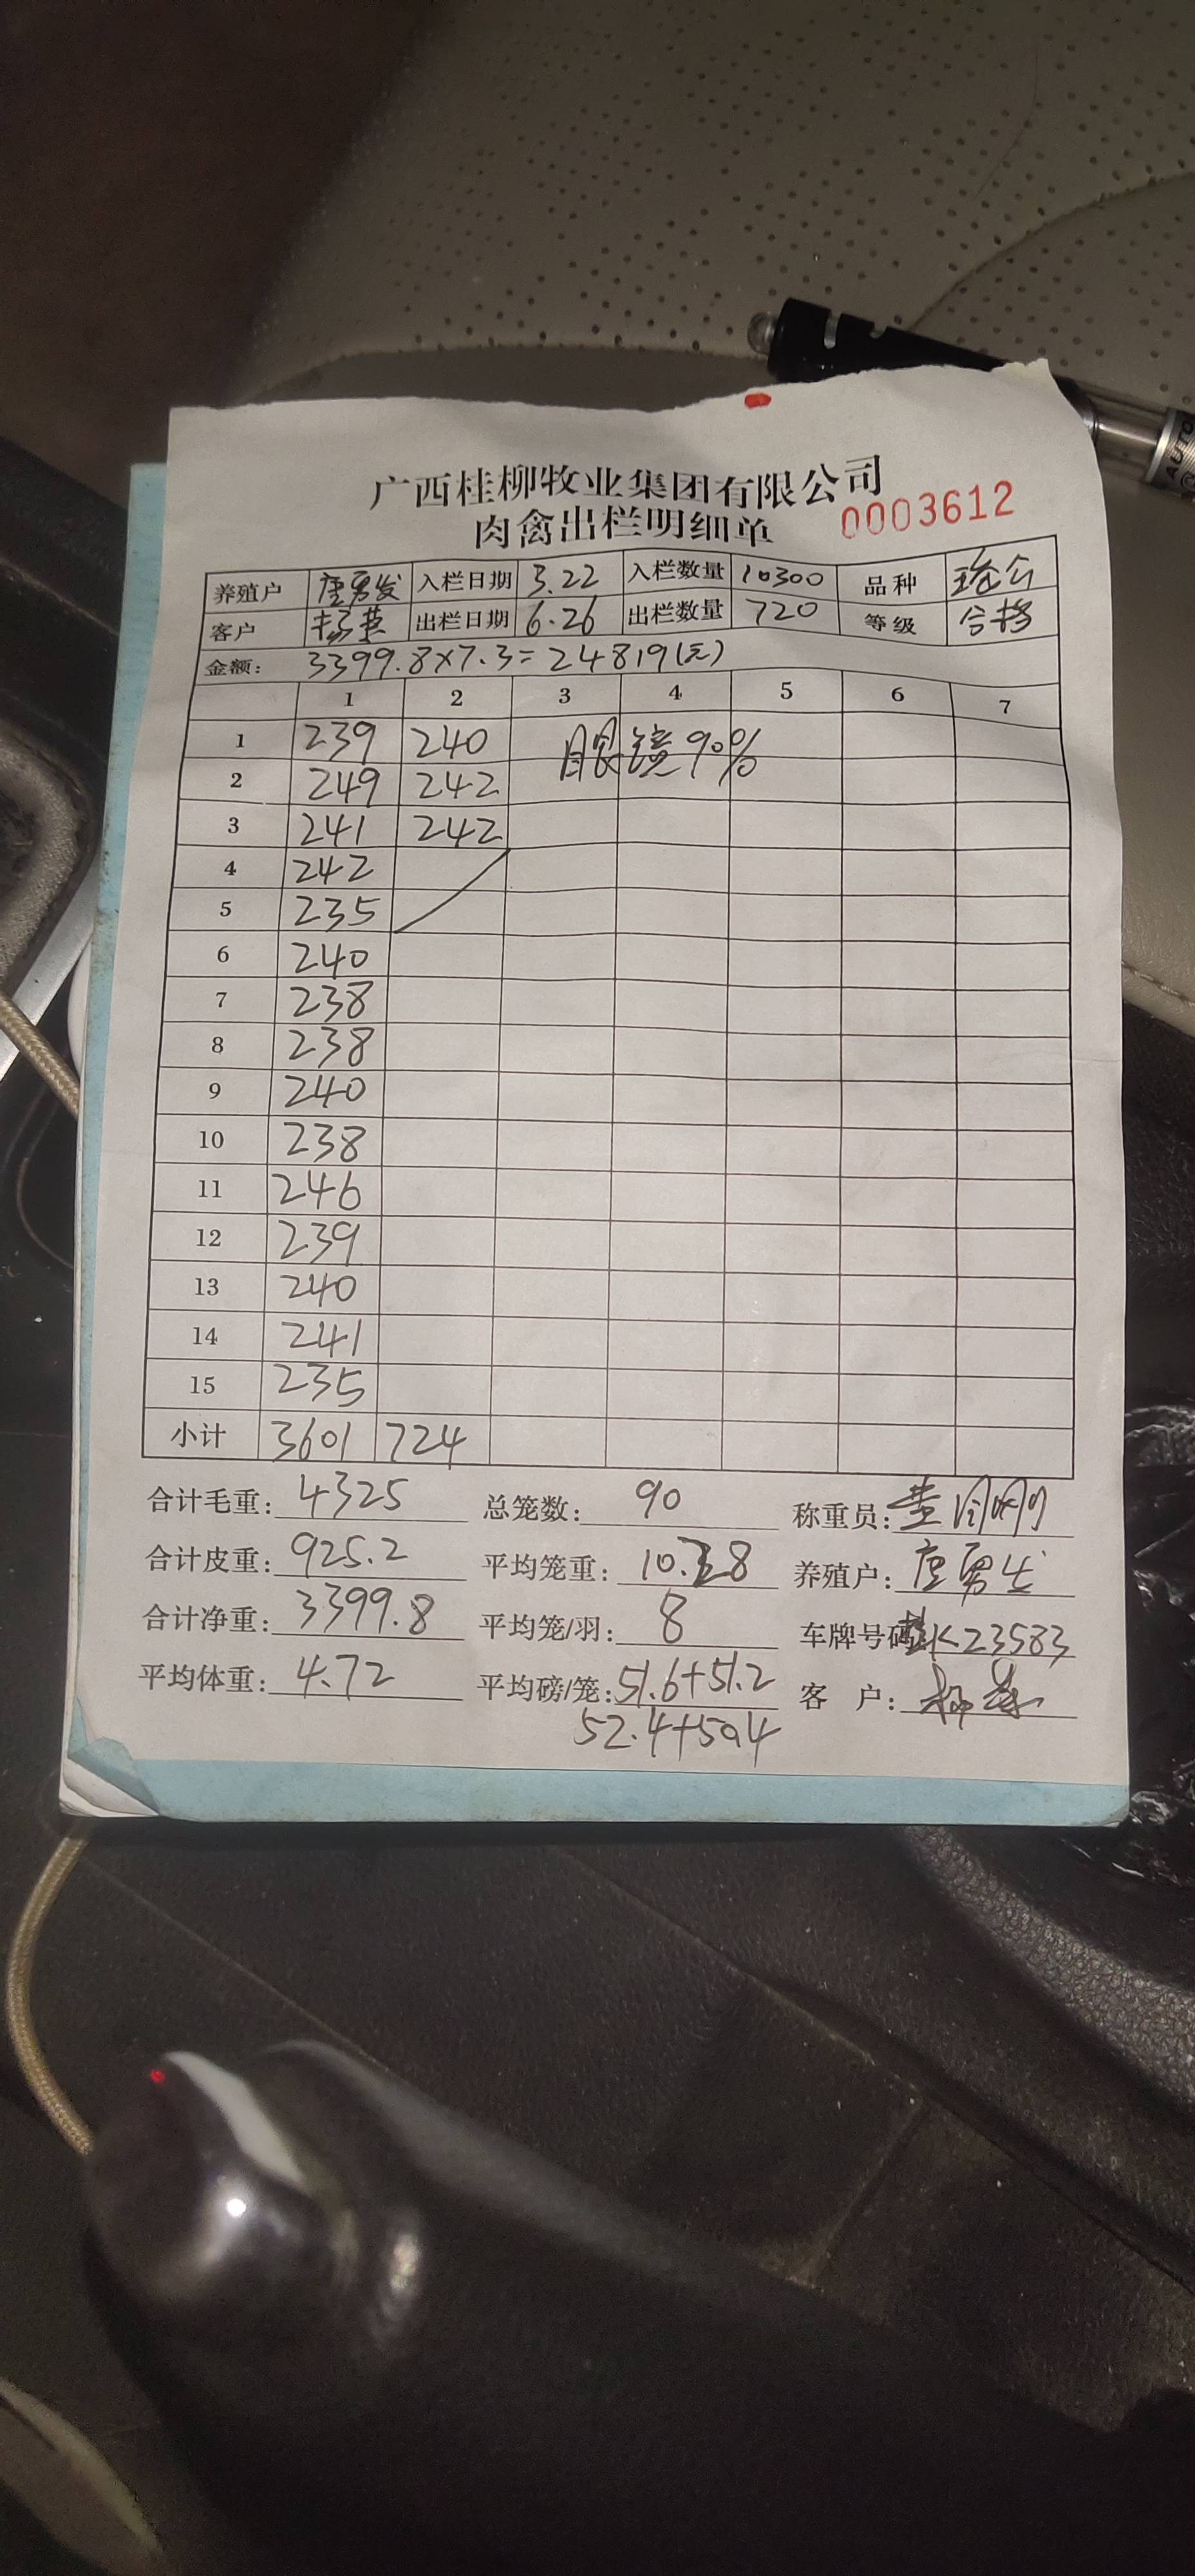 广西桂柳牧业集团有限公司
肉禽出栏明细单 0003612
养殖户 唐男发 入栏日期 3.22 入栏数量 10300 品种
客户 出栏日期 6.26 出栏数量 720 等级 合格
金额： 3399.8×7.3=24819(元)
1 2 3 4 5 6 7
1 239 240 眼镜90%
2 249 242
3 241 242
4 242
5 235
6 240
7 238
8 238
9 240
10 238
11 246
12 239
13 240
14 241
15 235
小计 3601 724
合计毛重： 4325 总笼数： 90 称重员：
合计皮重： 925.2 平均笼重： 10.28 养殖户： 唐男
合计净重： 3399.8 平均笼/羽： 8 车牌号码 K23583
平均体重： 4.72 平均磅/笼： 51.6+51.2 客 户：
52.4+50.4
AUTO